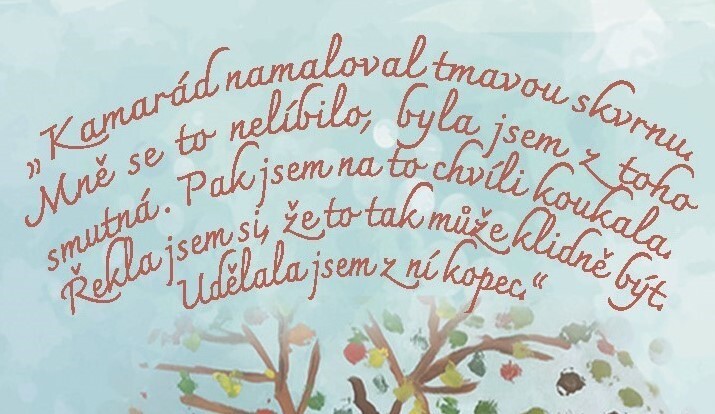 „Kamarád namaloval tmavou skvrnu.
Mně se to nelíbilo, byla jsem z toho
smutná. Pak jsem na to chvíli koukala.
Řekla jsem si, že to tak může klidně být.
Udělala jsem z ní kopec.“